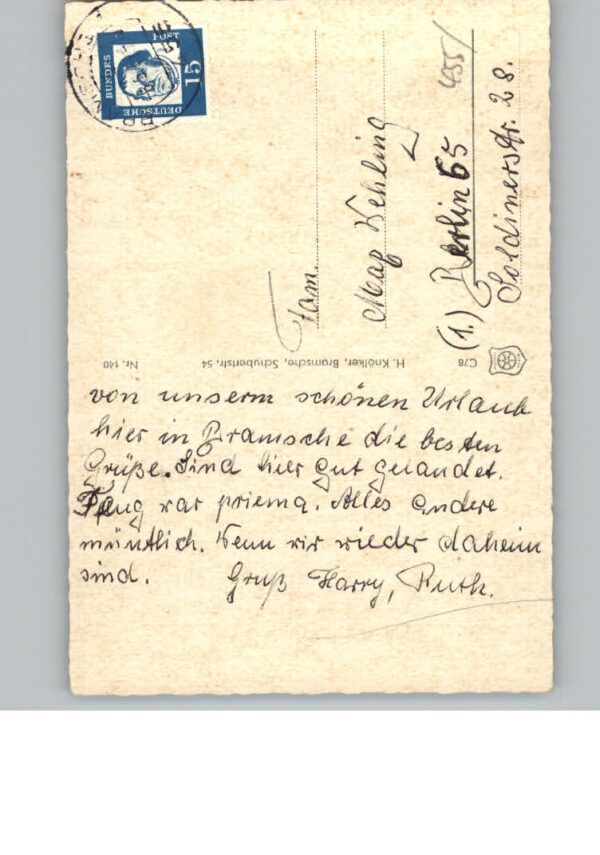 15
DEUTSCHE
BUNDES
POST
Fam.
Max Wehling
(1.) Berlin 65
Soldinerstr. 28.
Nr. 140
H. Knölker, Bramsche, Schubertstr. 54
C78
von unserm schönen Urlaub
hier in Bramsche die besten
Grüße. Sind hier gut gelandet.
war priema. Alles andere
müntlich. Wenn wir wieder daheim
sind. Gruß Harry, Ruth.